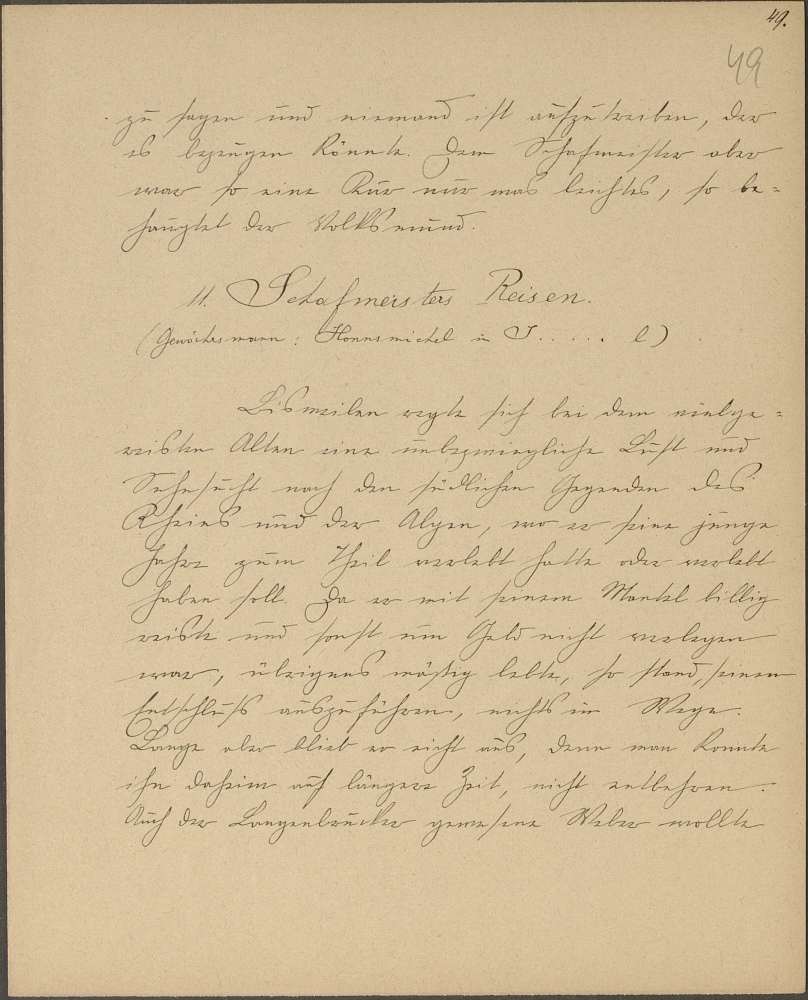 49.
49
zu sagen und niemand ist aufzutreiben, der
es bezeugen könnte. Dem Schafmeister aber
war so eine Kur nur was leichtes, so be=
hauptet der Volksmund.
11. Schafmeisters Reisen.
(Gewährsmann: Hannsmichel in J..... l)
Bisweilen regte sich bei dem vielge=
reisten Alten eine unbezwingliche Lust und
Sehnsucht nach den südlichen Gegenden des
Rheins und der Alpen, wo er seine junge
Jahre zum Theil verlebt hatte oder verlebt
haben soll. Da er mit seinem Mantel billig
reiste und sonst um Geld nicht verlegen
war, übrigens mäßig lebte, so stand, seinen
Entschluß auszuführen, nichts im Wege.
Lange aber blieb er nicht aus, denn man konnte
ihn daheim auf längere Zeit, nicht entbehren.
Auch der Langenbrücker gewesene Weber wollte